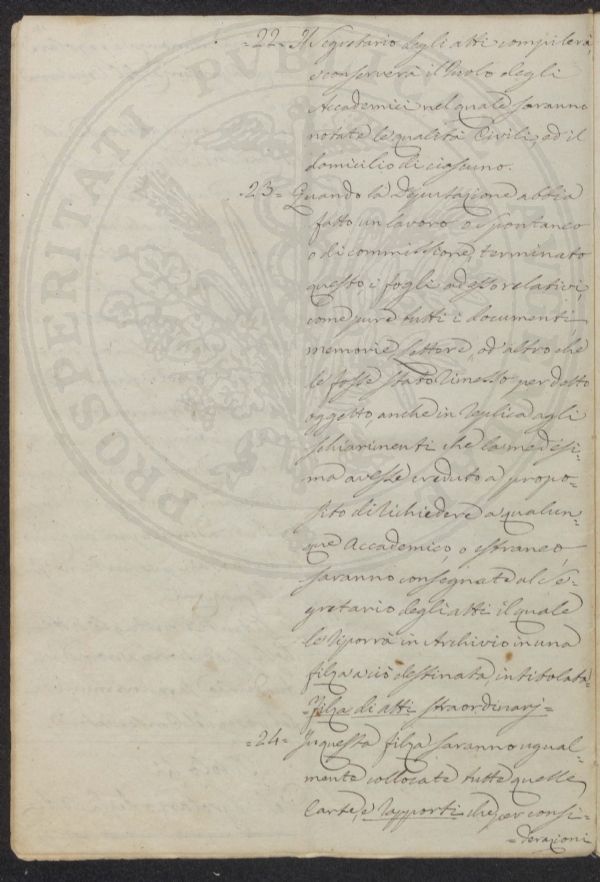 =22= Il Segretario degli atti compilerà,
e conserverà il Ruolo degli
Accademici nel quale saranno
notate le qualità Civili, ed il
domicilio di ciascuno.
=23= Quando la Deputazione abbia
fatto un lavoro o spontaneo
o di commissione, terminato
questo i fogli ad esso relativi,
come pure tutti i documenti,
memorie, lettere, od altro che
le fosse stato rimesso per detto
oggetto, anche in replica agli
schiarimenti che la medesi-
ma avesse creduto a propo-
sito di richiedere a qualun-
que Accademico, o estraneo,
saranno consegnate al Se-
gretario degli atti il quale
le riporrà in Archivio in una
filza a ciò destinata, intitolata
=Filza di atti straordinarj=
=24= In questa filza saranno ugual-
mente collocate tutte quelle
Carte, e rapporti che per consi-
=derazioni
PROSPERITATI PVBLICAE